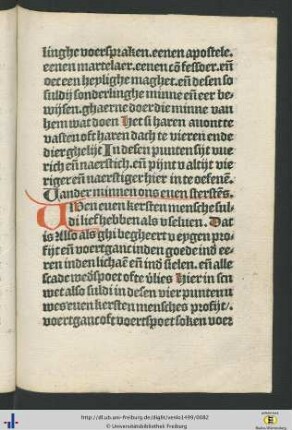 linghe voerspraken. eenen apostele.
eenen martelaer. eenen cōfessoer. eñ
oec een heylighe maghet. eñ desen so
suldij sonderlinghe minne eñ eer be-
wijsen. ghaerne doer die minne van
hem wat doen Het si haren auont te
vasten oft haren dach te vieren ende
dierghelijc In desen punten sijt vue
rich eñ naerstich. eñ pijnt v altijt vie
riger eñ naerstiger hier in te oefenē.
Van der minnen ons euen kerstēs.
Uwen euen kersten mensche sul-
di lief hebben als v seluen. Dat
is Also als ghi begheert v eygen pro-
fijt eñ voertganc in den goede inđ ee-
ren in den lichaē eñ inđ sielen. eñ alle
scade weđspoet ofte v̄lies Hier in sn̄
wet also suldi in desen vier puntenn
uwes euen kersten mensches profijt.
voertganc oft voerspoet soken voer
http://dl.ub.uni-freiburg.de/diglit/venlo1499/0082
© Universitätsbibliothek Freiburg